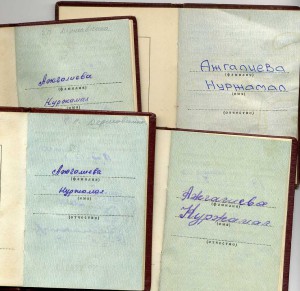 Ажгалиева
(фамилия)
Нуржамал
Ажгалиева
(фамилия)
Нуржамал
(имя)
(отчество)
Ажгалиева
(фамилия)
Нуржамал
(имя)
(отчество)
Ажгалиева
(фамилия)
Нуржамал
(имя)
(отчество)